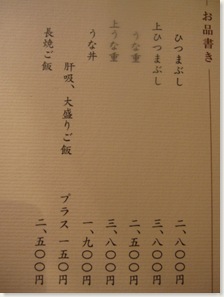 お品書き
ひつまぶし 二、八〇〇円
上ひつまぶし 三、八〇〇円
うな重 二、五〇〇円
上うな重 三、八〇〇円
うな丼 一、九〇〇円
肝吸、大盛りご飯 プラス 一五〇円
長焼ご飯 二、五〇〇円